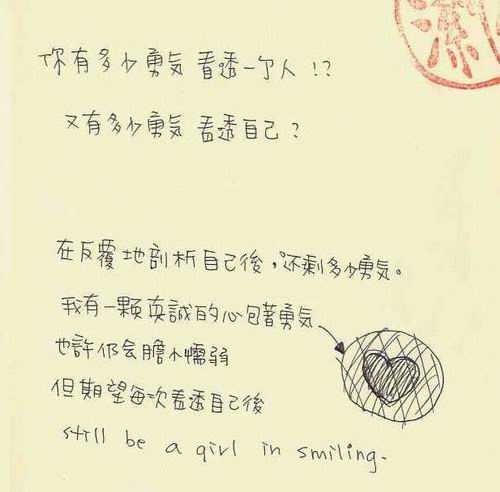 潔
你有多少勇気 看透一个人 !?
又有多少勇気 看透自己?
在反覆地剖析自己後,还剩多少勇気。
我有一顆真誠的心包著勇気
也許仍会膽小懦弱
但期望每次看透自己後
still be a girl in smiling.